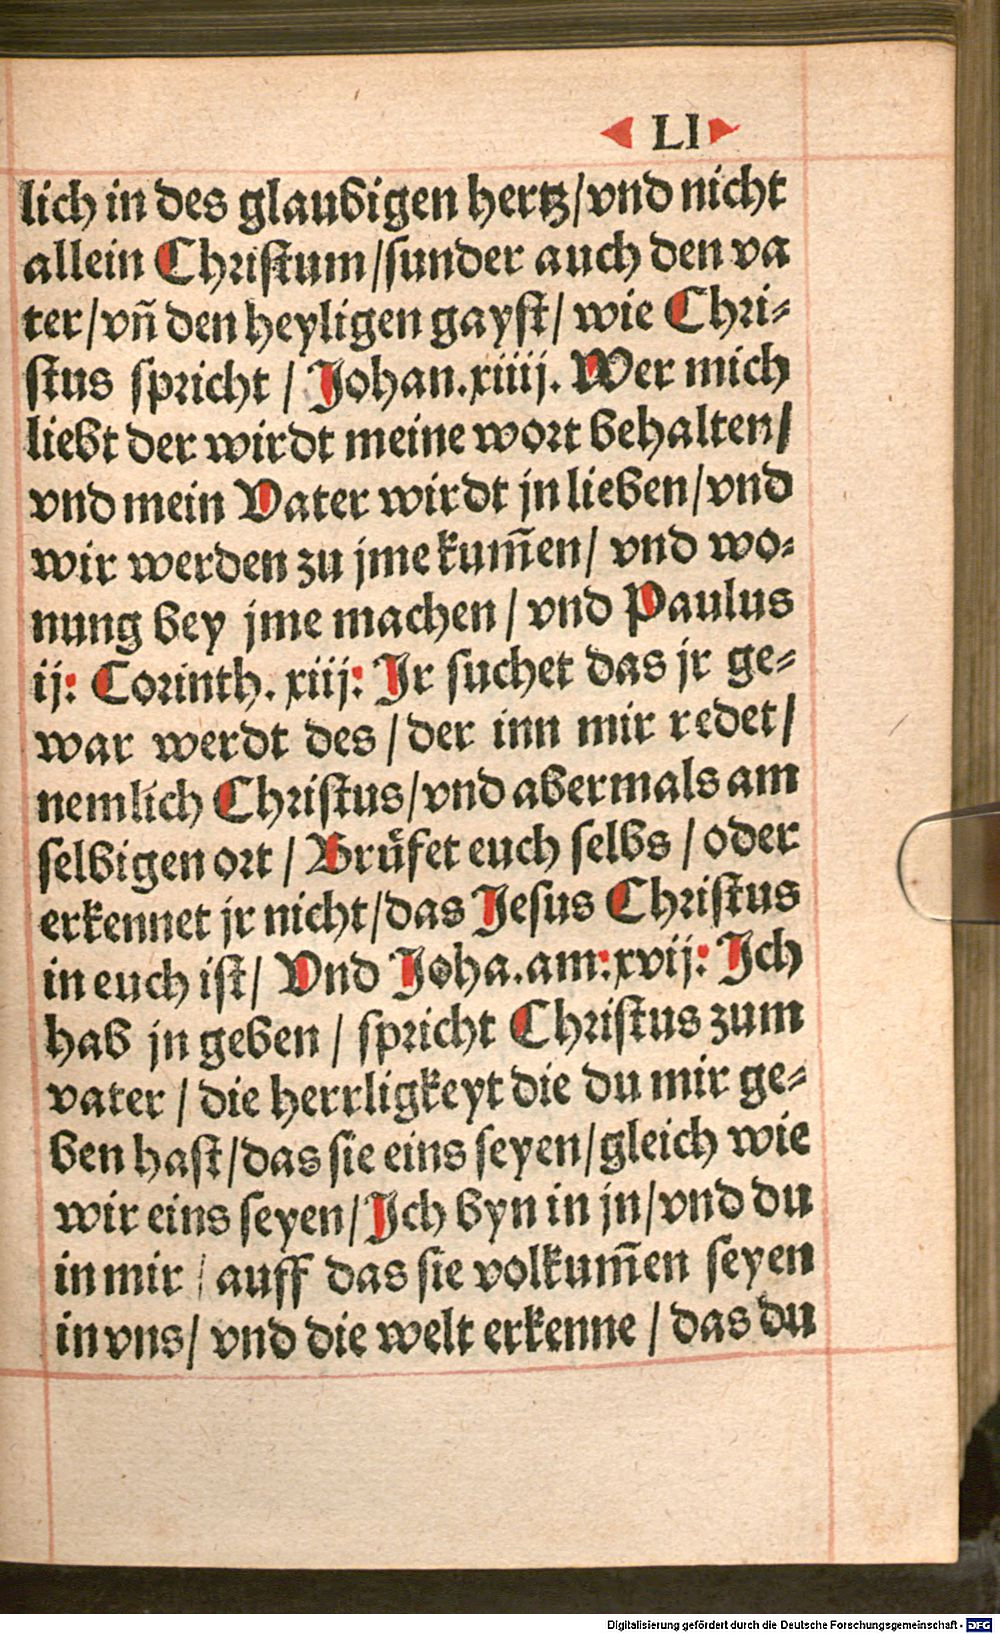 LI
lich in des glaubigen hertz/vnd nicht
allein Christum/sunder auch den va
ter/vñ den heyligen gayst/ wie Chri-
stus spricht / Johan.xiiij. Wer mich
liebt der wirdt meine wort behalten/
vnd mein Vater wirdt jn lieben/vnd
wir werden zu jme kum̃en/ vnd wo-
nung bey jme machen / vnd Paulus
ij: Corinth. xiij: Jr suchet das jr ge-
war werdt des / der inn mir redet/
nemlich Christus/vnd abermals am
selbigen ort / Brüfet euch selbs / oder
erkennet jr nicht/das Jesus Christus
in euch ist/ Vnd Joha.am:xvij: Jch
hab jn geben / spricht Christus zum
vater / die herrligkeyt die du mir ge-
ben hast/das sie eins seyen/gleich wie
wir eins seyen/Jch byn in jn/vnd du
in mir / auff das sie volkum̃en seyen
in vns/ vnd die welt erkenne / das du
Digitalisierung gefördert durch die Deutsche Forschungsgemeinschaft - DFG